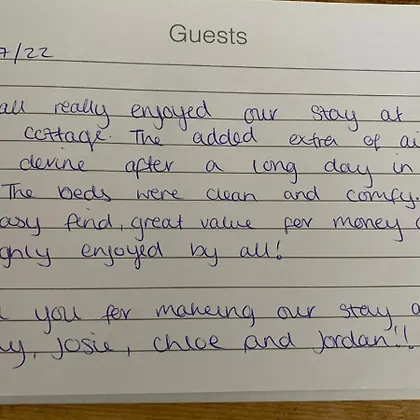 Guests
7/22
all really enjoyed our stay at
cottage. The added extra of ai
devine after a long day in
The beds were clean and comfy.
asy find, great value for money
ghly enjoyed by all!
you for makeing our stay a
y, Josie, chloe and Jordan!!